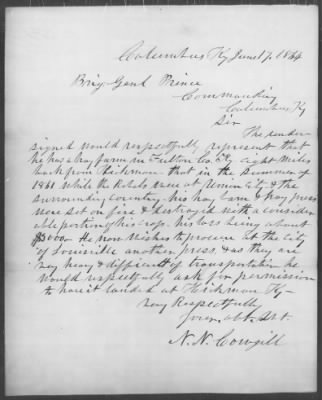 Columbus Ky June 17, 1864
Brig Genl Prince
Commanding
Columbus Ky
Sir
The under-
signed would respectfully represent that
he has a hay farm in Fulton Co. Ky eight miles
back from Hickman that in the summer of
1861 while the Rebels were at Union City & the
surrounding country his hay barn & hay press
were set on fire & destroyed with a consider-
able portion of his crop. his loss being about
$3000 He now wishes to procure at the city
of Louisville another press & as they are
very heavy & difficult of transportation he
would respectfully ask for permission
to have it landed at Hickman Ky-
Very Respectfully
Your obt. Svt
N. N. Cowgill